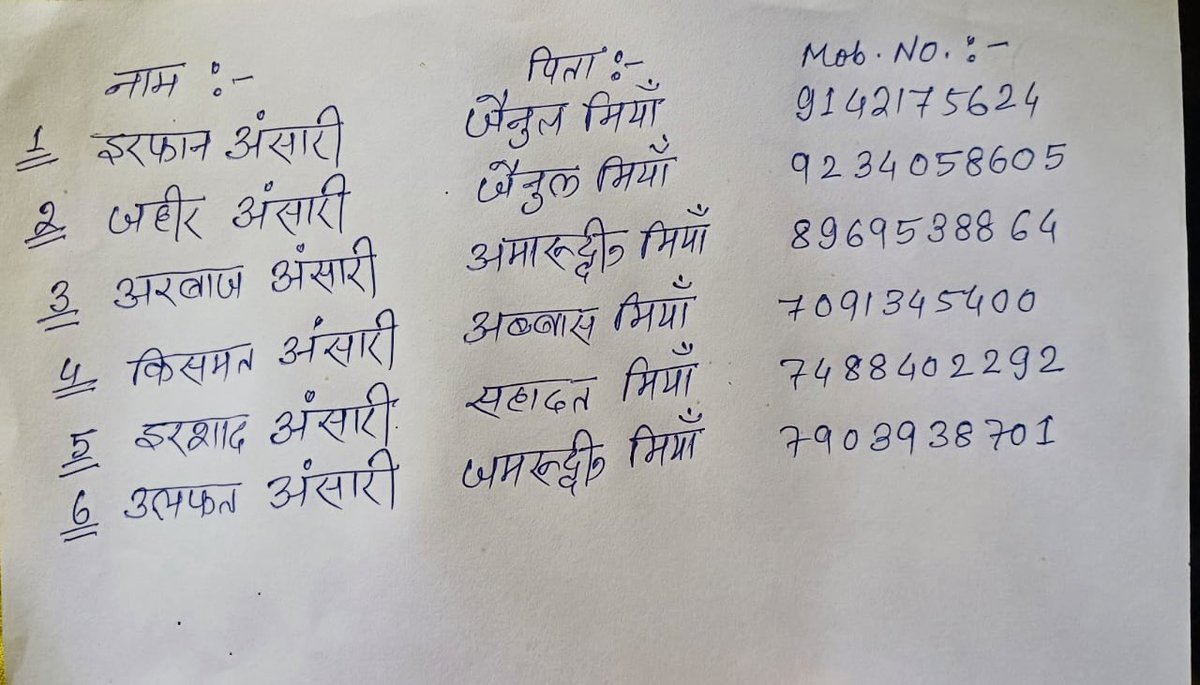 नाम :- पिता :- Mob. No. :-
1 इरफान अंसारी जैनुल मियाँ 9142175624
2 जहीर अंसारी जैनुल मियाँ 9234058605
3 अरबाज अंसारी अमारूद्दीन मियाँ 8969538864
4 किसमत अंसारी अब्बास मियाँ 7091345400
5 इरशाद अंसारी सहादत मियाँ 7488402292
6 उल्फत अंसारी जमरूद्दीन मियाँ 7903938701